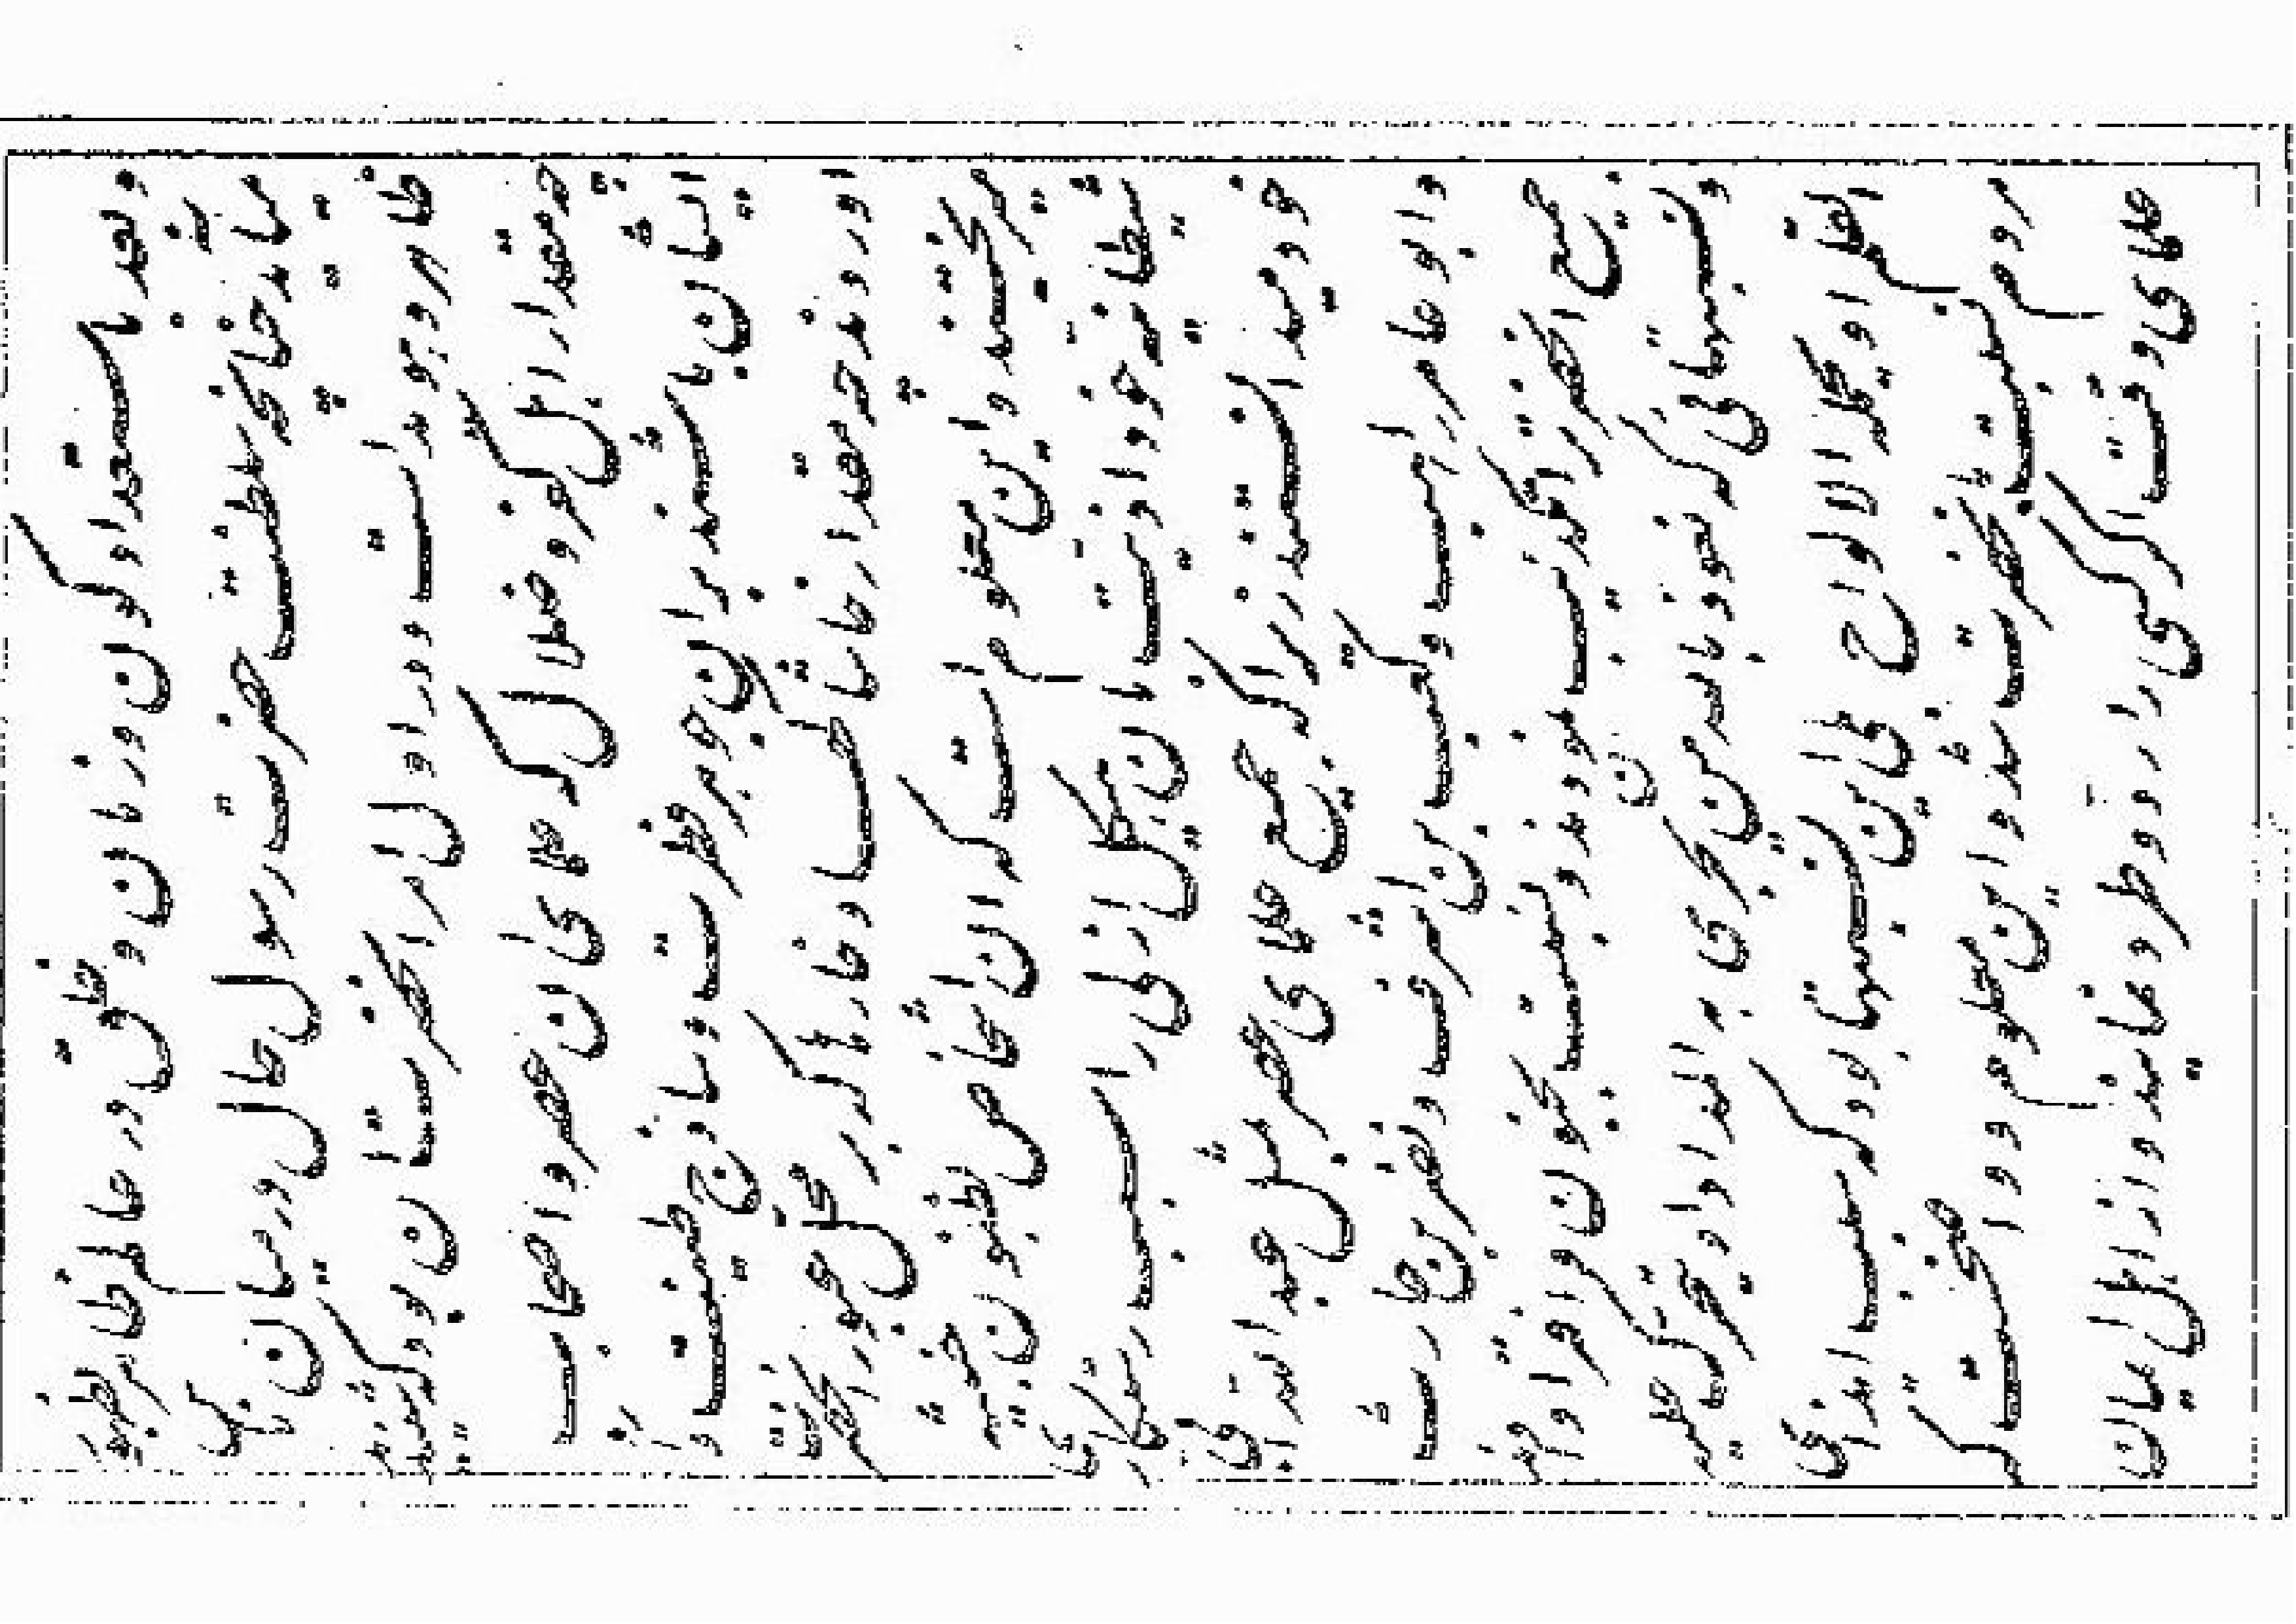 و بقدر استعداد اکوان و زمان و خلق در عالم ظاهر بظهور
میاید چنانچه سلطنت حضرت رسول حال در میان
ظاهر و هویداست و در اول امر آنحضرت آن بود که شنیدید
چه مقدار از اهل کفر و ضلال که علمای آن عصر و اصحاب
ایشان باشند بر آن جوهر فطرت و ساذج طینت وارد
آوردند چه مقدار از خاشاکها و خارها که در محل عبور آنحضرت
میریختند و این معلوم است که آن اشخاص بظنون خبیثه
شیطانیه خود اذیت بآن هیکل ازلی را سبب رستگاری
خود میدانستند زیرا که جمیع علمای عصر مثل عبدالله ابی
و ابو عامر راهب و کعب بن اشرف و نضر بن حارث
جمیع آنحضرت را تکذیب نمودند و نسبت بجنون و افترا دادند
و نسبتهائی که نعوذ بالله من ان یجری به المداد او یتحرک علیه
القلم او یحمله الالواح بلی این نسبتها بود که سبب ایذای
مردم نسبت بآنحضرت شد و این معلوم و واضحست که
علمای وقت اگر کسی را رد و طرد نمایند و از اهل ایمان